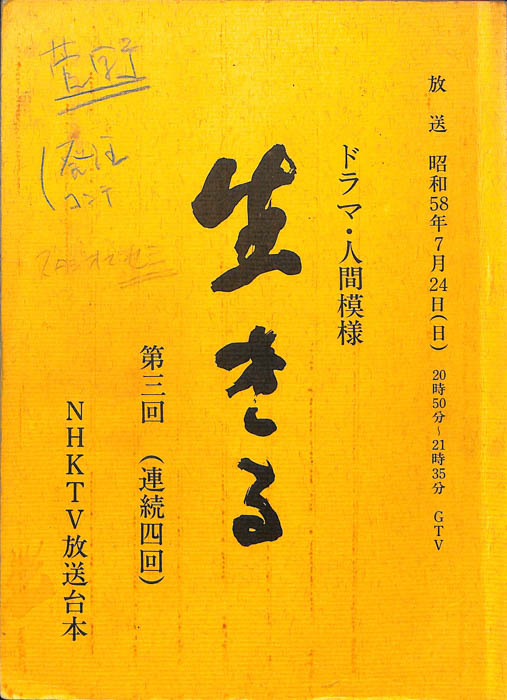 放送 昭和58年7月24日(日) 20時50分〜21時35分 GTV
ドラマ・人間模様
生きる
第三回 (連続四回)
NHKTV放送台本
菅野
コンテ